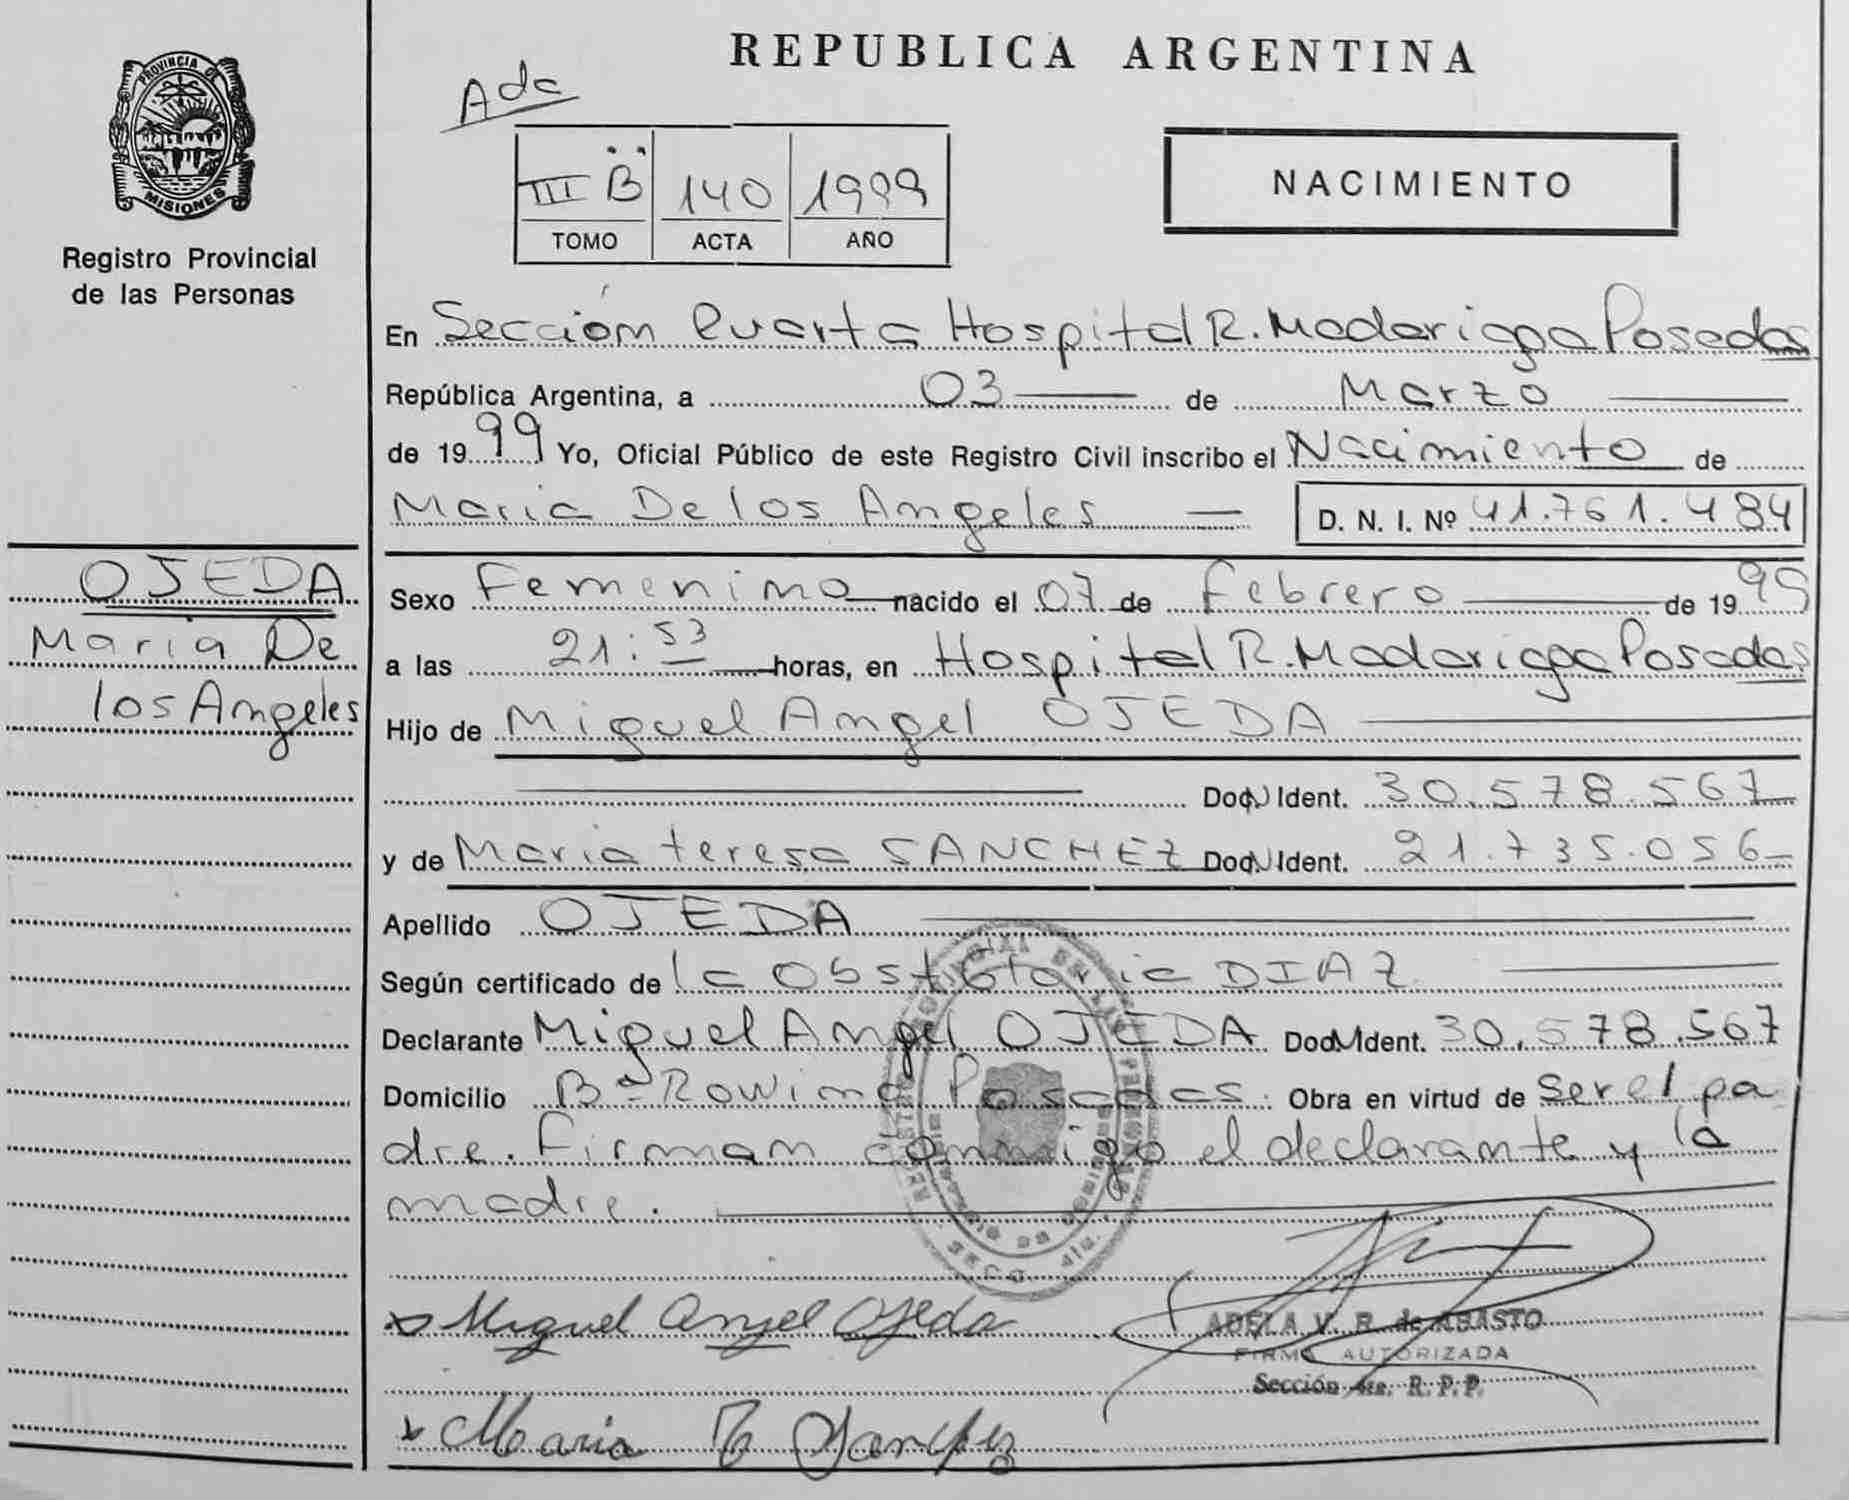 REPUBLICA ARGENTINA
PROVINCIA DE
MISIONES
Registro Provincial
de las Personas
Ada
III B 140 1999
TOMO ACTA AÑO
NACIMIENTO
En Sección Cuarta Hospital R. Madariaga Posadas
República Argentina, a 03 de Marzo
de 1999 Yo, Oficial Público de este Registro Civil inscribo el Nacimiento de
Maria De los Angeles D. N. I. Nº 41.761.484
OJEDA
Maria De
los Angeles
Sexo Femenino nacido el 07 de Febrero de 1999
a las 21:53 horas, en Hospital R. Madariaga Posadas
Hijo de Miguel Angel OJEDA
Doc. Ident. 30.578.567
y de Maria teresa SANCHEZ Doc. Ident. 21.735.056
Apellido OJEDA
Según certificado de la Obstetaria DIAZ
Declarante Miguel Angel OJEDA Doc. Ident. 30.578.567
Domicilio Bº Rowing Posadas Obra en virtud de ser el pa
dre. Firman conmigo el declarante y la
madre.
x Miguel Angel Ojeda
ADELA V. R. de ABASTO
FIRMA AUTORIZADA
Sección 4ta. R. P. P.
x Maria T Sanchez